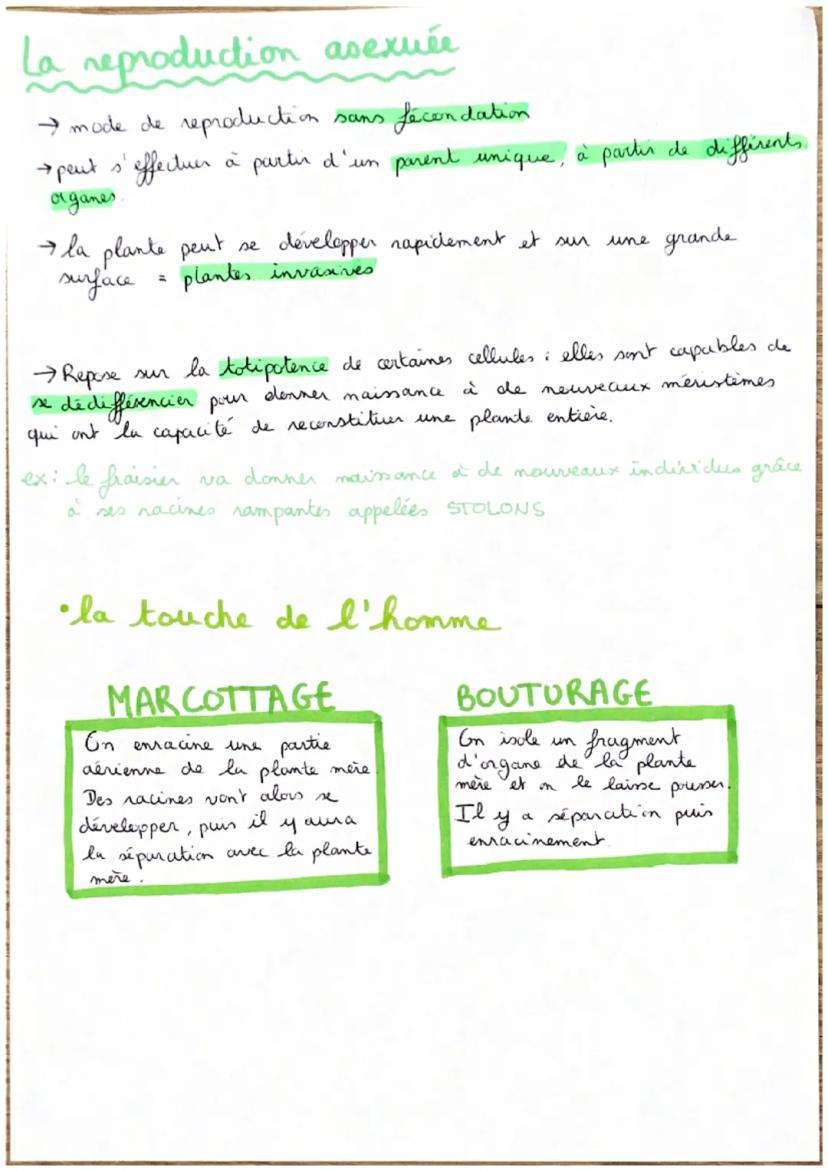 La reproduction asexuée
→ mode de reproduction sans fécondation
→ peut s'effectuer à partir d'un parent unique, à partir de différents
organes.
→ la plante peut se développer rapidement et sur une grande
surface = plantes invasives
→ Repose sur la totipotence de certaines cellules : elles sont capables de
se dédifférencier pour donner naissance à de nouveaux méristèmes
qui ont la capacité de reconstituer une plante entière.
ex : le fraisier va donner naissance à de nouveaux individus grâce
à ses racines rampantes appelées STOLONS
• la touche de l'homme
MARCOTTAGE
On enracine une partie
aérienne de la plante mère.
Des racines vont alors se
développer, puis il y aura
la séparation avec la plante
mère.
BOUTURAGE
On isole un fragment
d'organe de la plante
mère et on le laisse pousser.
Il y a séparation puis
enracinement.